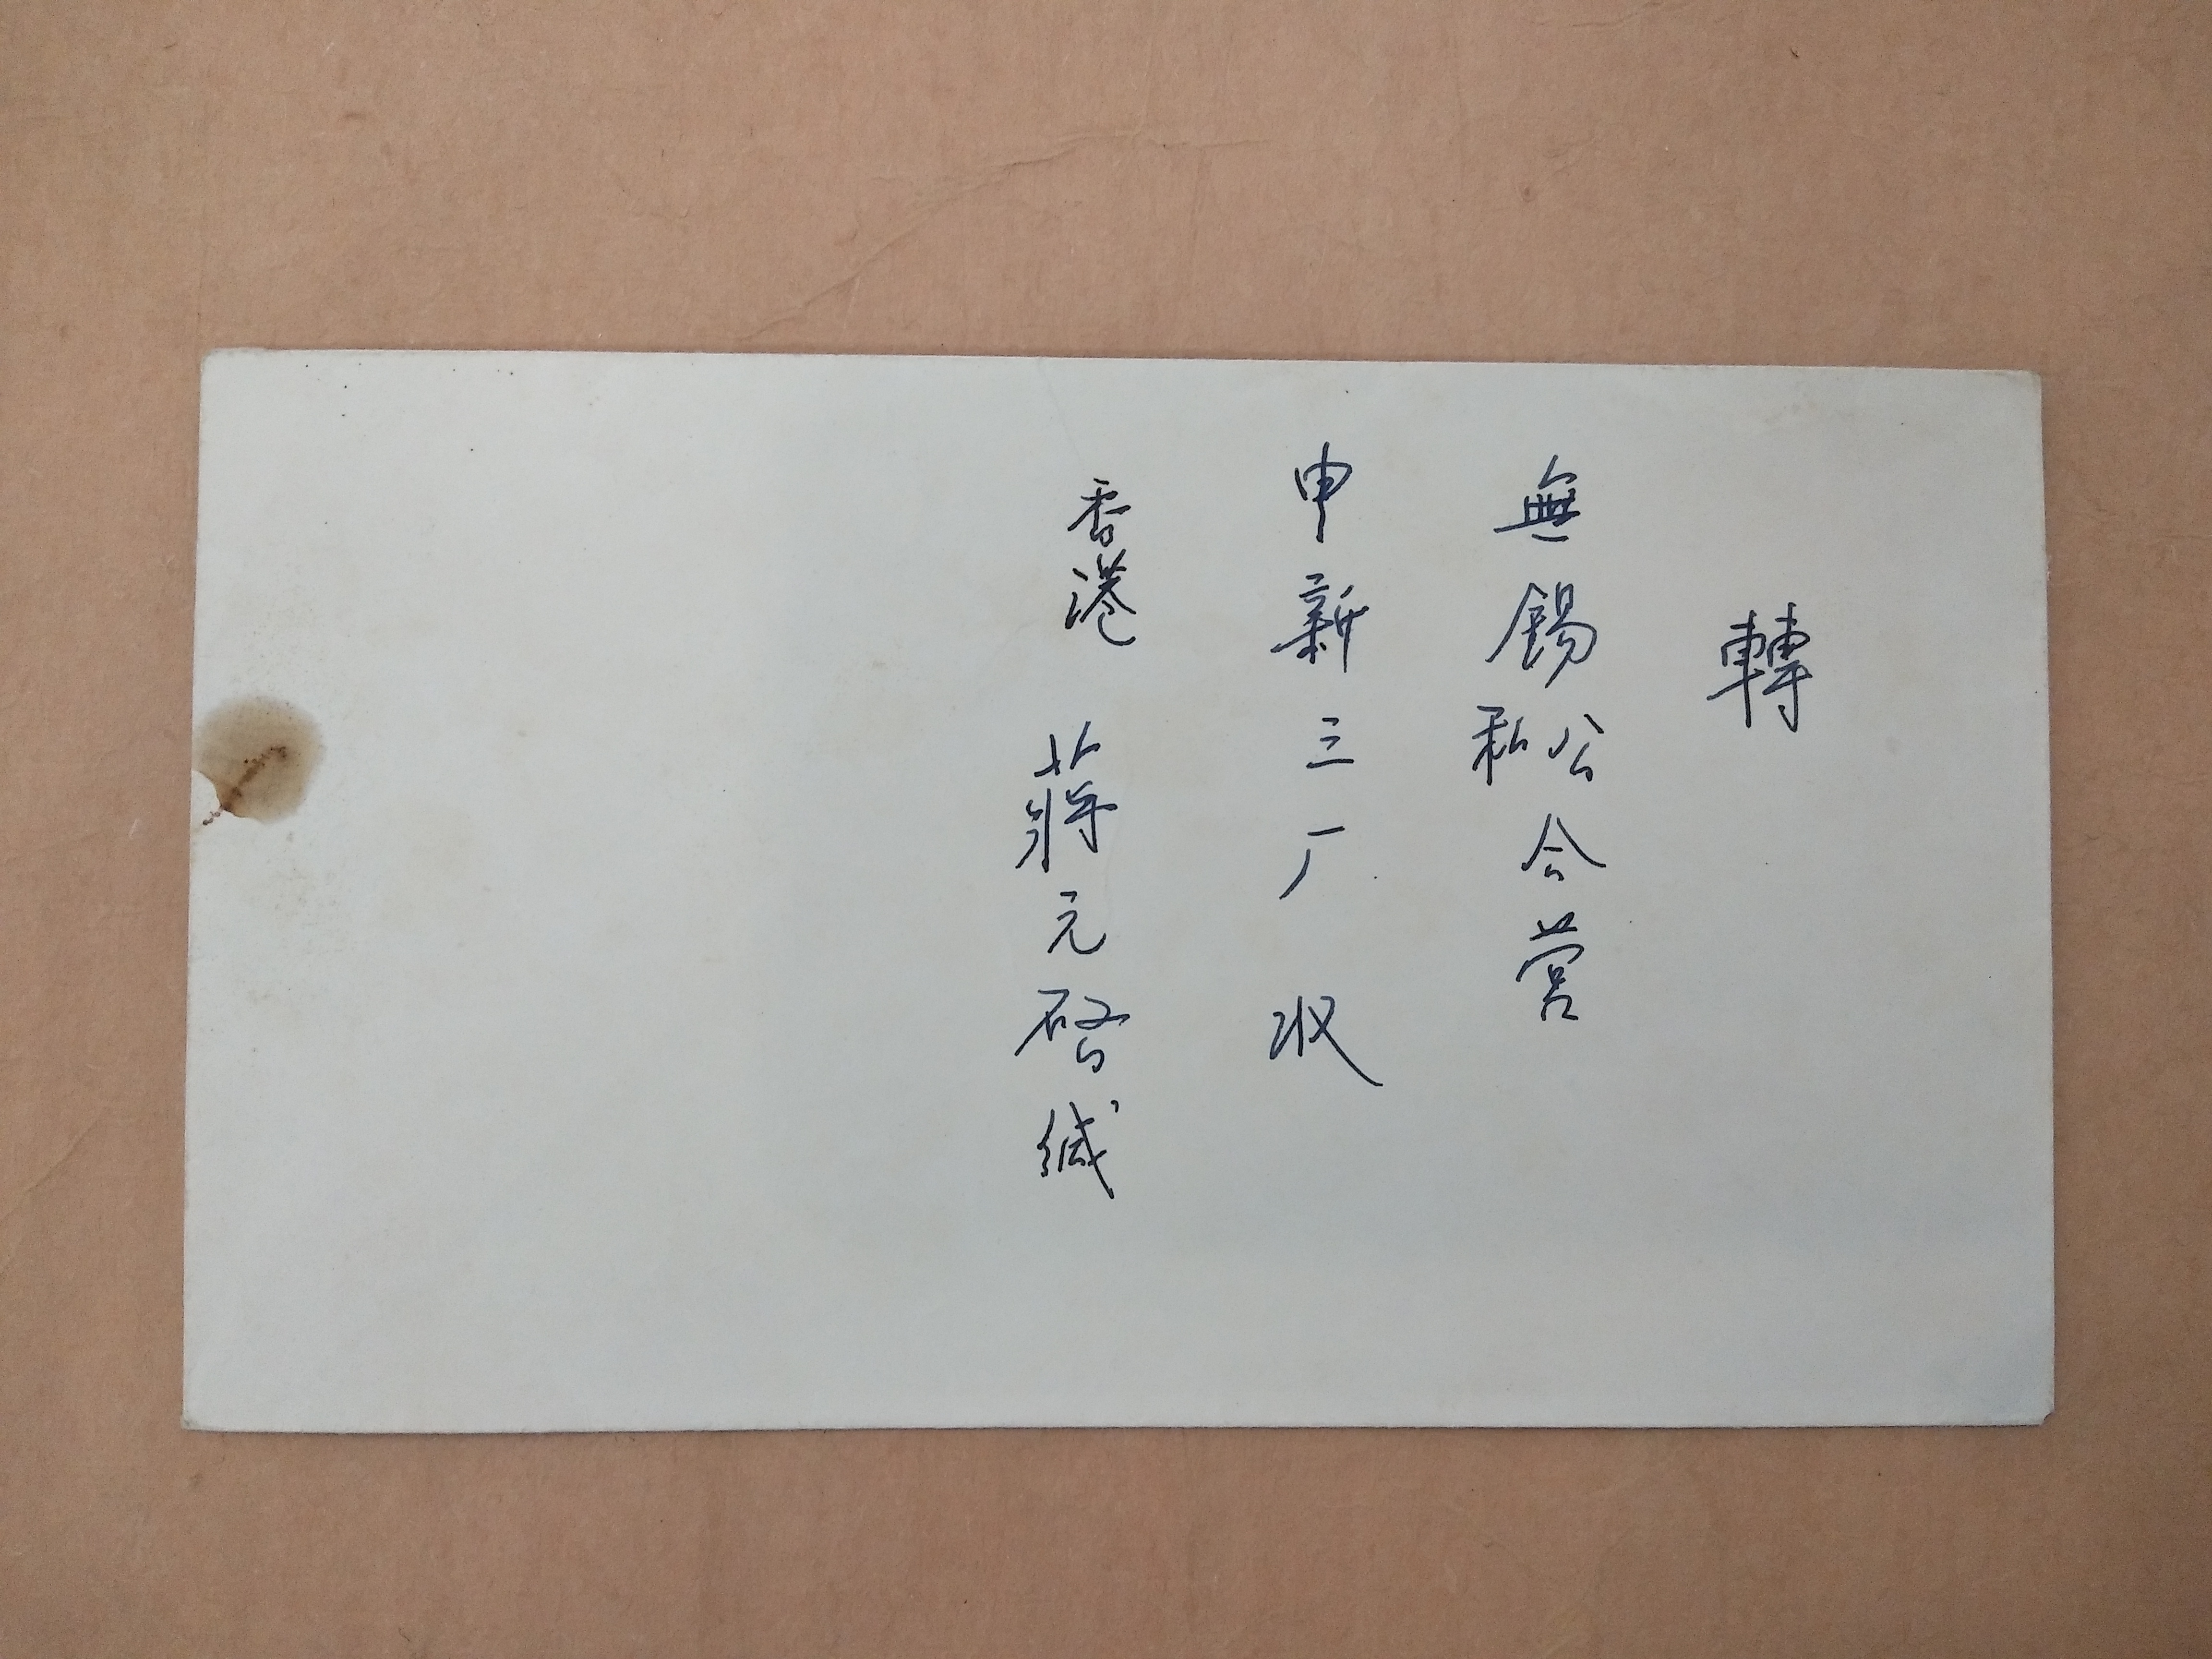 轉
無錫公私合营
申新三厂 收
香港 蔣元啓缄